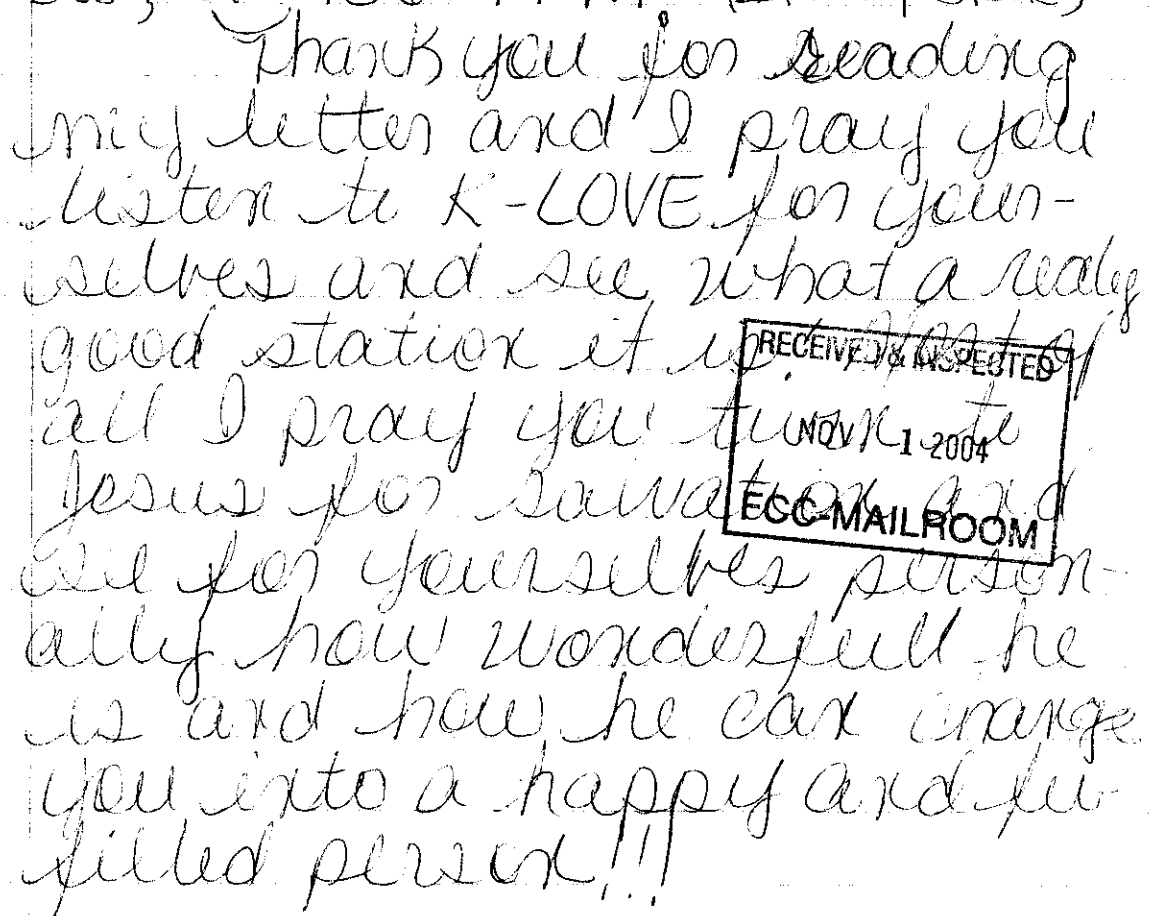 Thank you for reading
my letter and I pray you
listen to K-LOVE for your-
selves and see what a really
good station it is. Most of
all I pray you turn to
Jesus for salvation and
see for yourselves person-
ally how wonderfull he
is and how he can change
you into a happy and ful-
filled person!!!
RECEIVED & INSPECTED
NOV 1 2004
FCC-MAILROOM